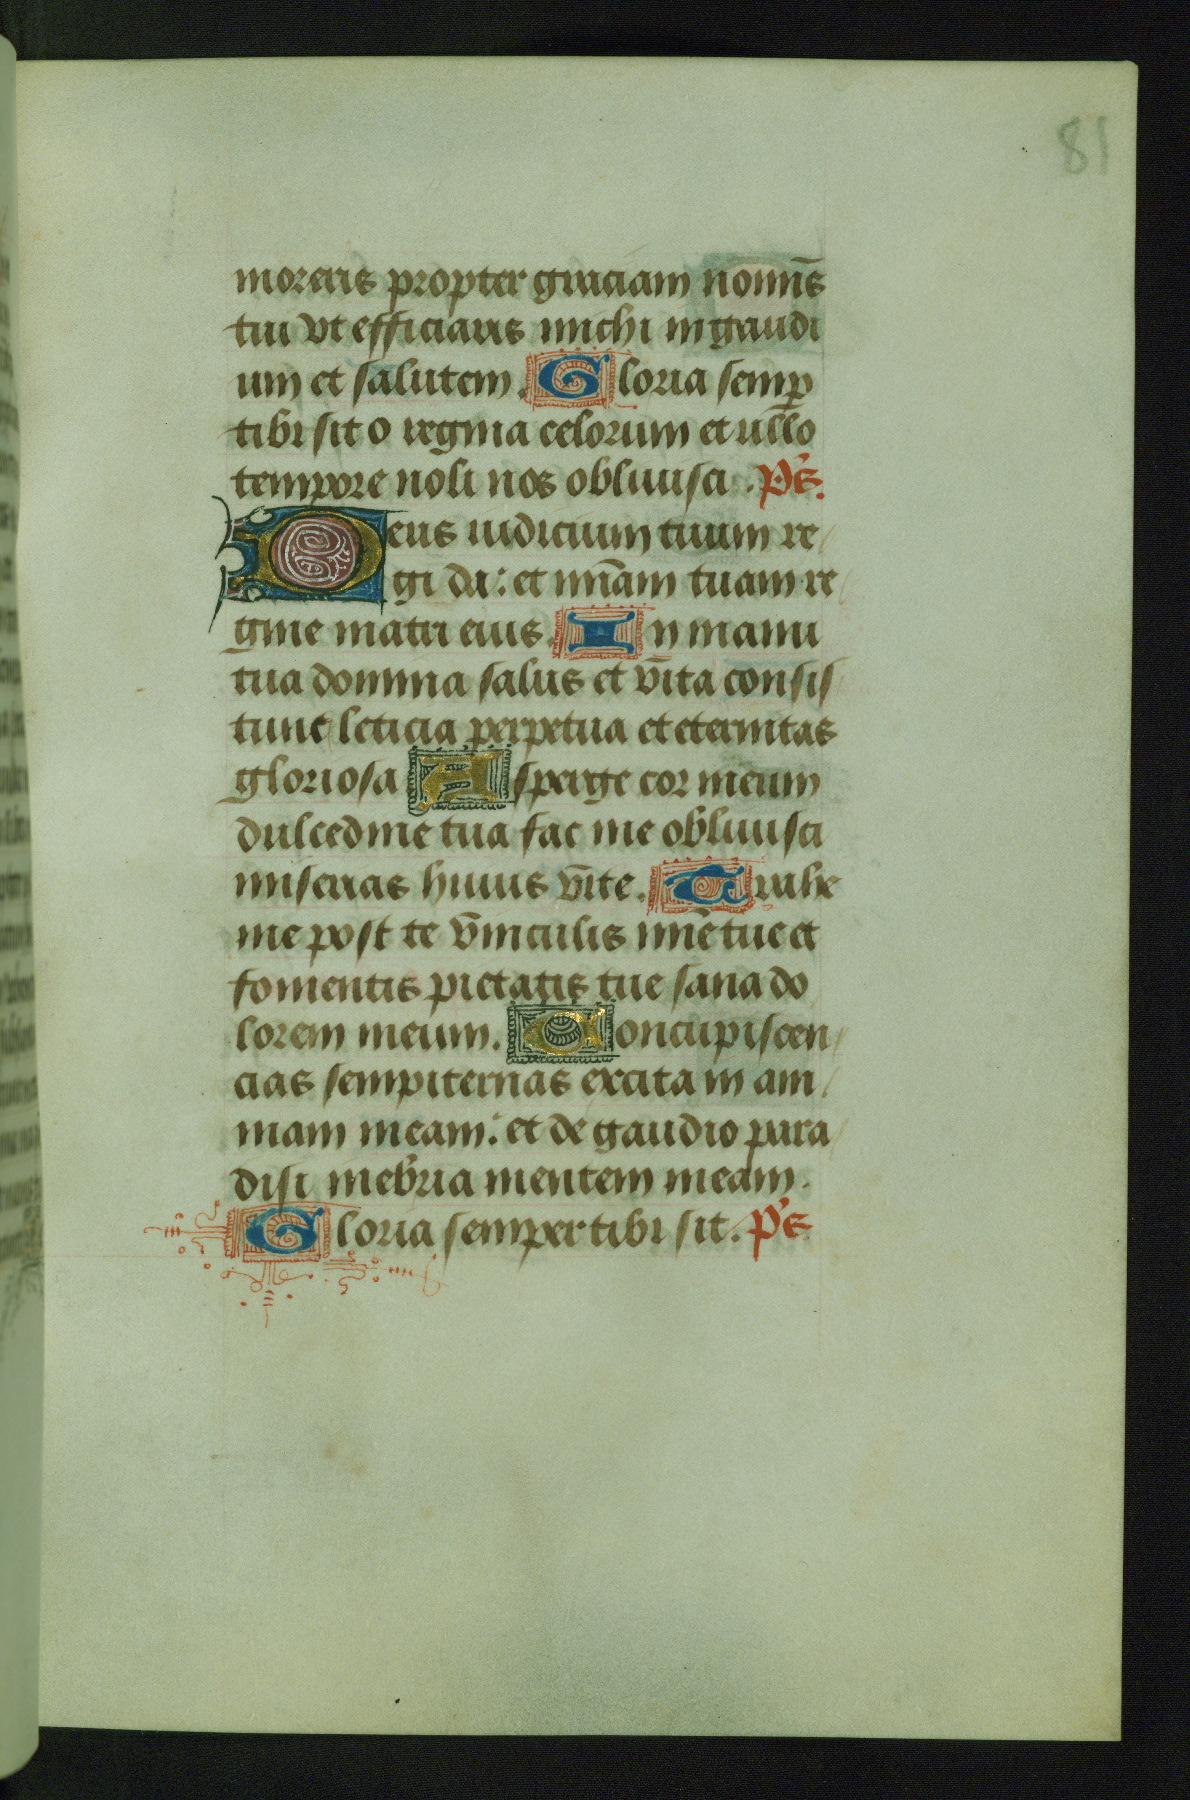 81
moreris propter graciam nomīs
tui vt efficiaris michi in gaudi
um et salutem. Gloria semp̄
tibi sit o regina celorum et ullo
tempore noli nos obliuisci. Ps̄.
Deus iudicium tuum re
gi da: et mīam tuam re
gine matri eius. In manu
tua domina salus et vita consis
tunt leticia perpetua et eternitas
gloriosa Asperge cor meum
dulcedine tua fac me obliuisci
miserias huius vite. Trahe
me post te vinculis mīe tue et
fomentis pietatis tue sana do
lorem meum. Concupiscen
cias sempiternas excita in ani
mam meam: et de gaudio para
disi inebria mentem meam.
Gloria semper tibi sit. Ps̄